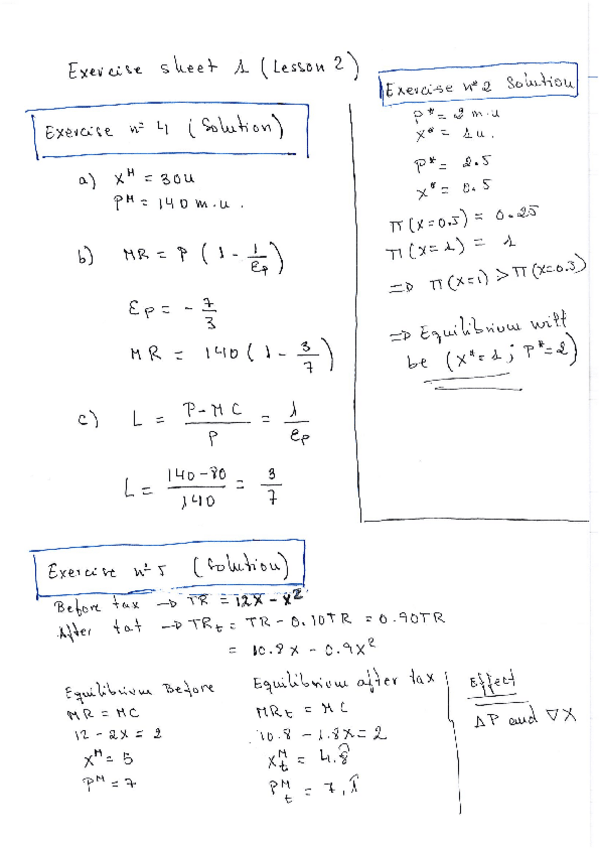 Exercise sheet 1 (Lesson 2)
Exercise nº 4 (Solution)
a) X^M = 30u
P^M = 140 m.u.
b) MR = P (1 - 1/Ep)
Ep = - 7/3
MR = 140 (1 - 3/7)
c) L = P-MC/P = 1/Ep
L = 140-80/140 = 3/7
Exercise nº 2 Solution
P* = 2 m.u
X* = 1u.
P* = 2.5
X* = 0.5
π(X=0.5) = 0.25
π(X=1) = 1
=> π(X=1) > π(X=0.5)
=> Equilibrium will
be (X*=1; P*=2)
Exercise nº 5 (Solution)
Before tax -> TR = 12X - X²
After tat -> TRt = TR - 0.10TR = 0.90TR
= 10.8X - 0.9X²
Equilibrium Before
MR = MC
12 - 2X = 2
X^M = 5
P^M = 7
Equilibrium after tax
MRt = MC
10.8 - 1.8X = 2
X^M_t = 4.8̂
P^M_t = 7.1̂
Effect
ΔP and ∇X